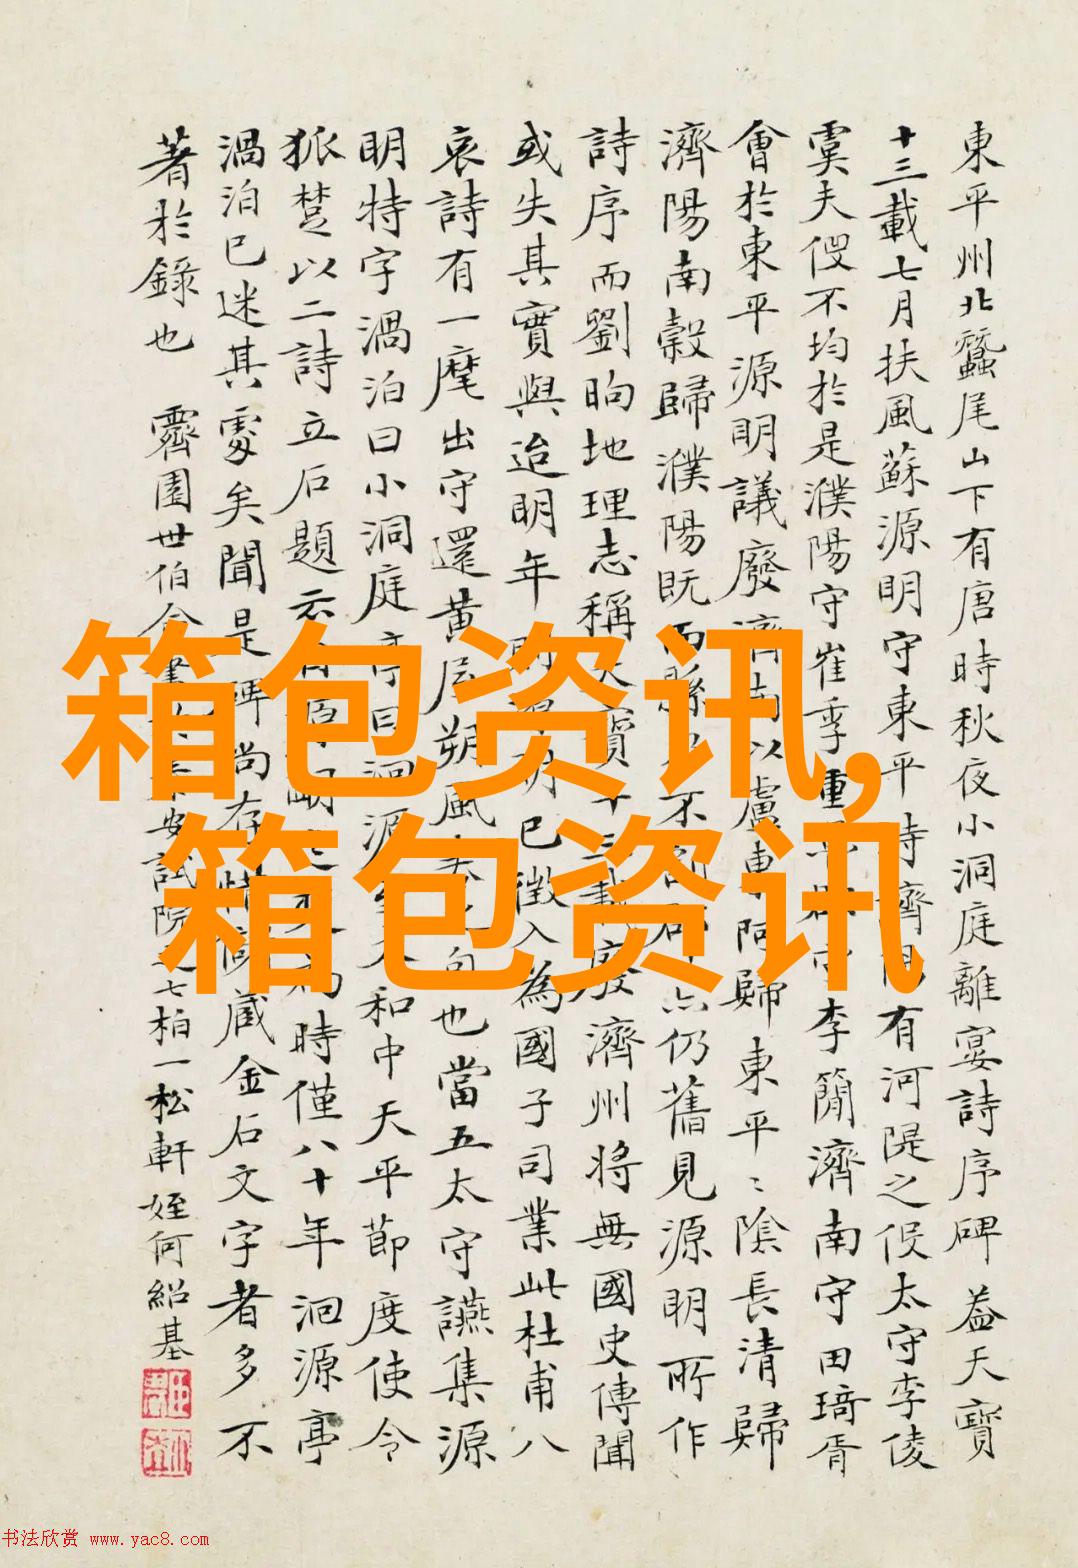 東平州北蠶尾山下有唐時秋夜小洞庭離宴詩序碑蓋天寶
十三載七月扶風蘇源明守東平時濟陽有河隄之役太守李倰
虞夫役不均於是濮陽守崔季重李簡濟南守田琦胥
會於東平源明議廢濟南以盧東阿歸東平〻陰長清歸
濟陽南穀歸濮陽既而縣不仍舊見源明所作
詩序而劉昫地理志稱天寶十三載廢濟州將無國史傳聞
或失其實與迨明年明已徵入為國子司業此杜甫八
哀詩有一麾出守還黃屋朔風句也當五太守讌集源
明特字渦泊曰小洞庭亭曰洄源大和中天平節度使令
狐楚以二詩立石題云時僅八十年洄源亭
渦泊已迷其處矣聞是碑尚存惜藏金石文字者多不
著於錄也
霽園世伯安試院之七柏一松軒 姪何紹基
箱包资讯,
箱包资讯
书法欣赏 www.yac8.com